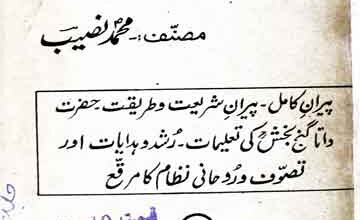 مصنّف:- محمد نصیب
پیرانِ کامل - پیرانِ شریعت و طریقت - حضرت
داتا گنج بخشؒ کی تعلیمات - رُشد و ہدایات اور
تصوّف و رُوحانی نظام کا مرقّع